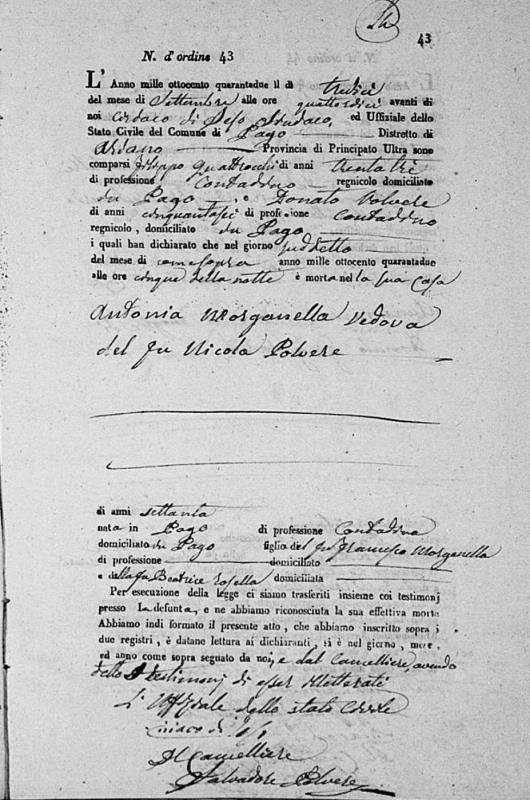 43
N. d'ordine 43
L'Anno mille ottocento quarantadue il dì tredici
del mese di Settembre alle ore quattordici avanti di
noi di Sindaco, ed Uffiziale dello
Stato Civile del Comune di Pago Distretto di
Ariano Provincia di Principato Ultra sono
comparsi Filippo Quattrocchi di anni trentatri
di professione Contadino regnicolo domiciliato
in Pago e Donato Polvere
di anni cinquantasei di professione Contadino
regnicolo, domiciliato in Pago
i quali han dichiarato che nel giorno suddetto
del mese di come sopra anno mille ottocento quarantadue
alle ore cinque della notte è morta nel la sua Casa
Antonia Morganella Vedova
del fu Nicola Polvere
di anni settanta
nata in Pago di professione Contadina
domiciliato in Pago figlia del fu Francesco Morganella
di professione domiciliato
e della fu Beatrice domiciliata
Per esecuzione della legge ci siamo trasferiti insieme coi testimonj
presso La defunta, e ne abbiamo riconosciuta la sua effettiva morte
Abbiamo indi formato il presente atto, che abbiamo inscritto sopra i
due registri, è datane lettura ai dichiaranti, si è nel giorno, mese,
ed anno come sopra segnato da noi, e dal Cancelliere, avendo
detto i testimonj di esser illetterati
L'Uffiziale dello stato Civile
Il Cancelliere
Salvadore Polvere